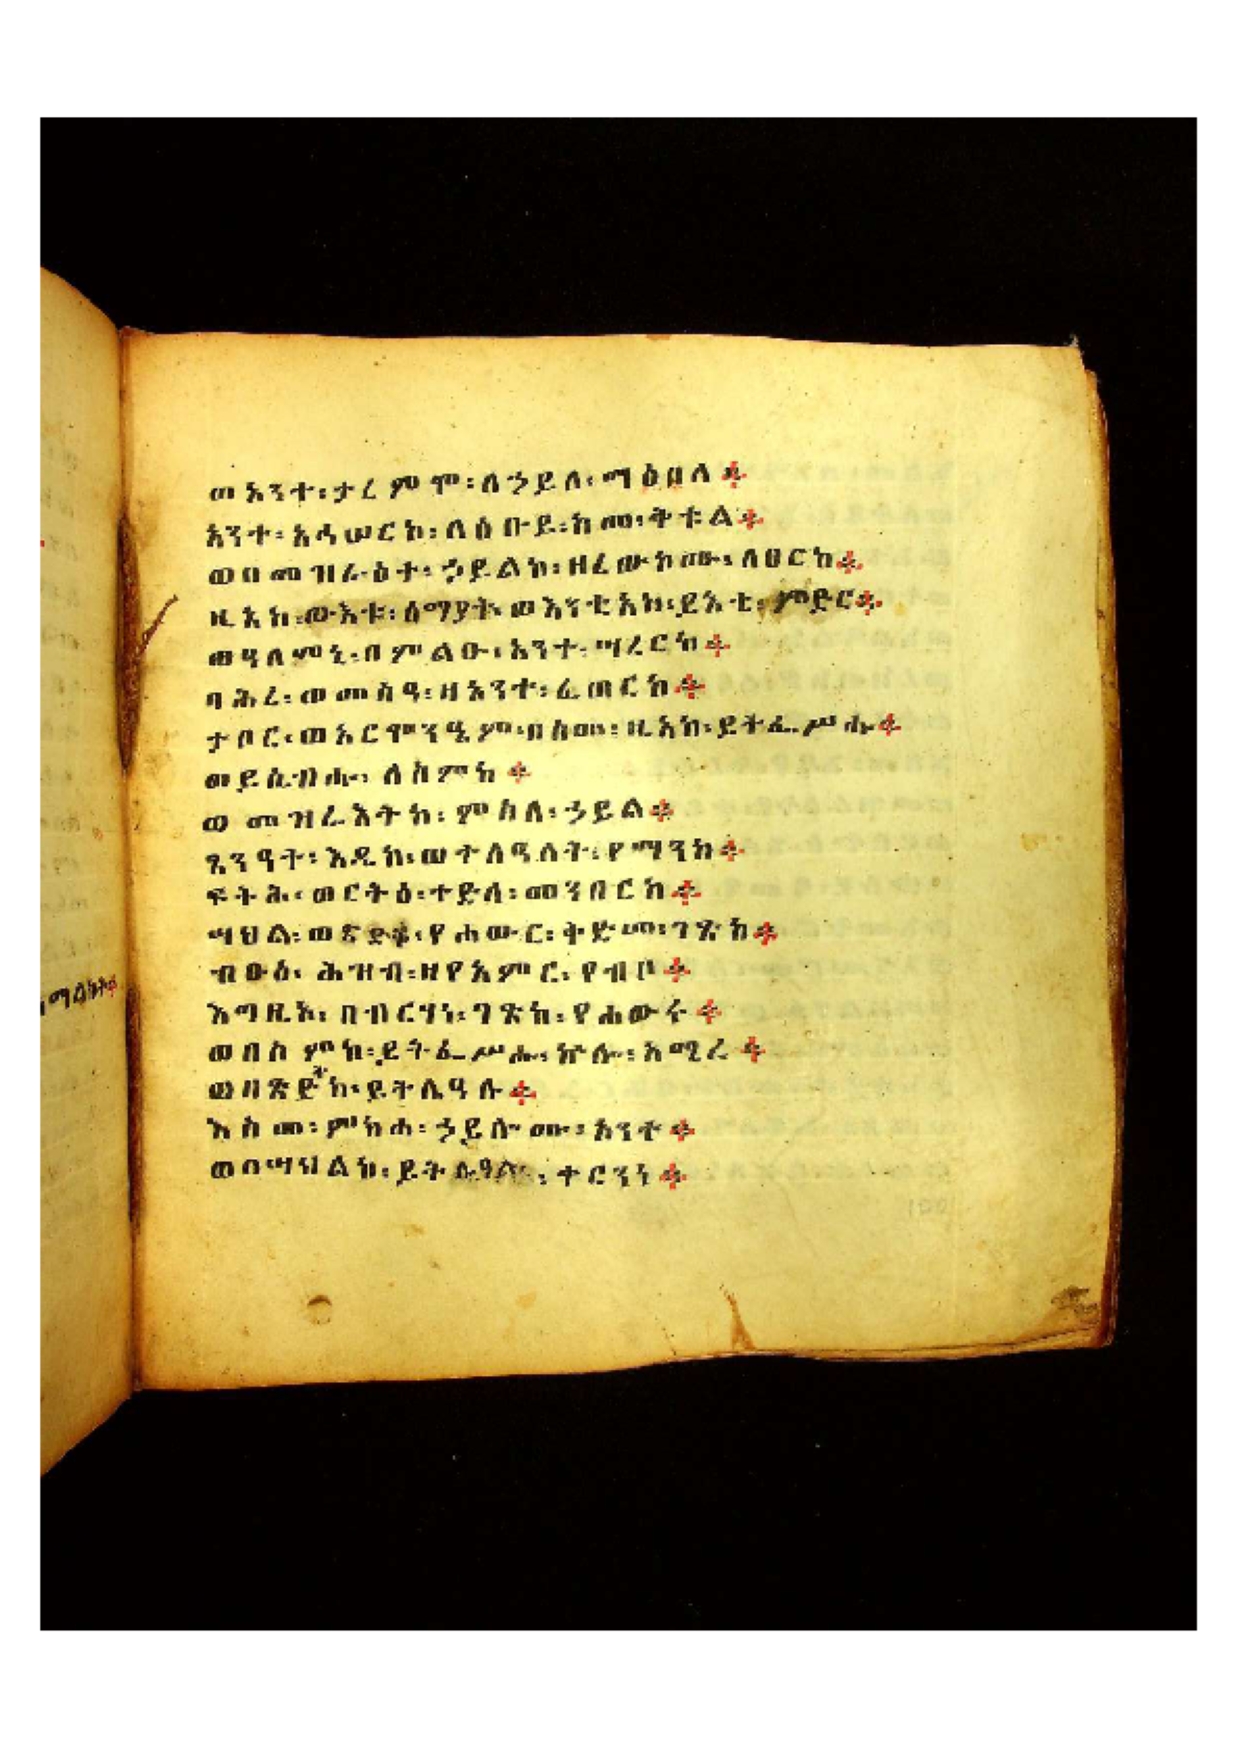 ወአንተ፡ታረምሞ፡ለኃይለ፡ማዕበለ፨
አንተ፡አሓሠርኮ፡ለዕቡይ፡ከመ፡ቅቱል፨
ወበመዝራዕተ፡ኃይልከ፡ዘረውኮሙ፡ለፀርከ፨
ዚአከ፡ውእቱ፡ሰማያት፡ወእንቲአከ፡ይእቲ፡ምድር፨
ወዓለምኒ፡በምልዑ፡አንተ፡ሣረርከ፨
ባሕረ፡ወመስዓ፡ዘአንተ፡ፈጠርከ፨
ታቦር፡ወአርሞንዔም፡በስመ፡ዚአከ፡ይትፌሥሑ፨
ወይሴብሑ፡ለስምከ፨
ወመዝራእትከ፡ምስለ፡ኃይል፨
ጸንዓት፡እዴከ፡ወተለዓለት፡የማንከ፨
ፍትሕ፡ወርትዕ፡ተድላ፡መንበርከ፨
ሣህል፡ወጽድቅ፡የሐውር፡ቅድመ፡ገጽከ፨
ብፁዕ፡ሕዝብ፡ዘየአምር፡የብቦ፨
እግዚኦ፡በብርሃነ፡ገጽከ፡የሐውሩ፨
ወበስምከ፡ይትፌሥሑ፡ኵሎ፡አሚረ፨
ወበጽድቅከ፡ይትሌዓሉ፨
እስመ፡ምክሐ፡ኃይሎሙ፡አንተ፨
ወበሣህልከ፡ይትሌዓል፡ቀርንነ፨